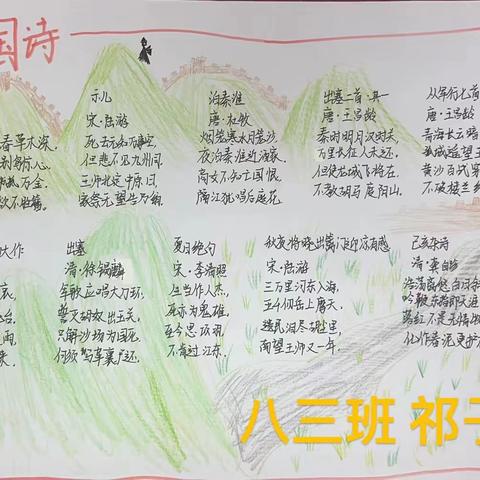 国诗
春草木深
示儿
宋·陆游
死去元知万事空,
但悲不见九州同
王师北定中原日,
家祭
泊秦淮
唐·杜牧
烟笼寒水月笼沙,
夜泊秦淮近酒家
商女不知亡国恨
隔江犹唱后庭花
出塞二首·其一
唐·王昌龄
秦时明月汉时关,
万里长征人未还,
但使龙城飞将在,
不教胡马度阴山。
从军行七首
唐·王昌龄
青海长云暗
孤城遥望玉
黄沙百战穿
不破楼兰
大作
出塞
清·徐锡麟
军歌应唱大刀环,
出玉关,
只解沙场为国死,
何须马革裹尸还。
夏日绝句
宋·李清照
生当作人杰,
死亦为鬼雄,
至今思项羽,
不肯过江东。
秋夜将晓出篱门迎凉有感
宋·陆游
三万里河东入海,
五千仞岳上摩天,
遗民泪尽胡尘里,
南望王师又一年。
己亥杂诗
清·龚自珍
浩荡离愁白日
吟鞭东指即天涯
落红不是无情物
化作春泥更护
八三班 祁子